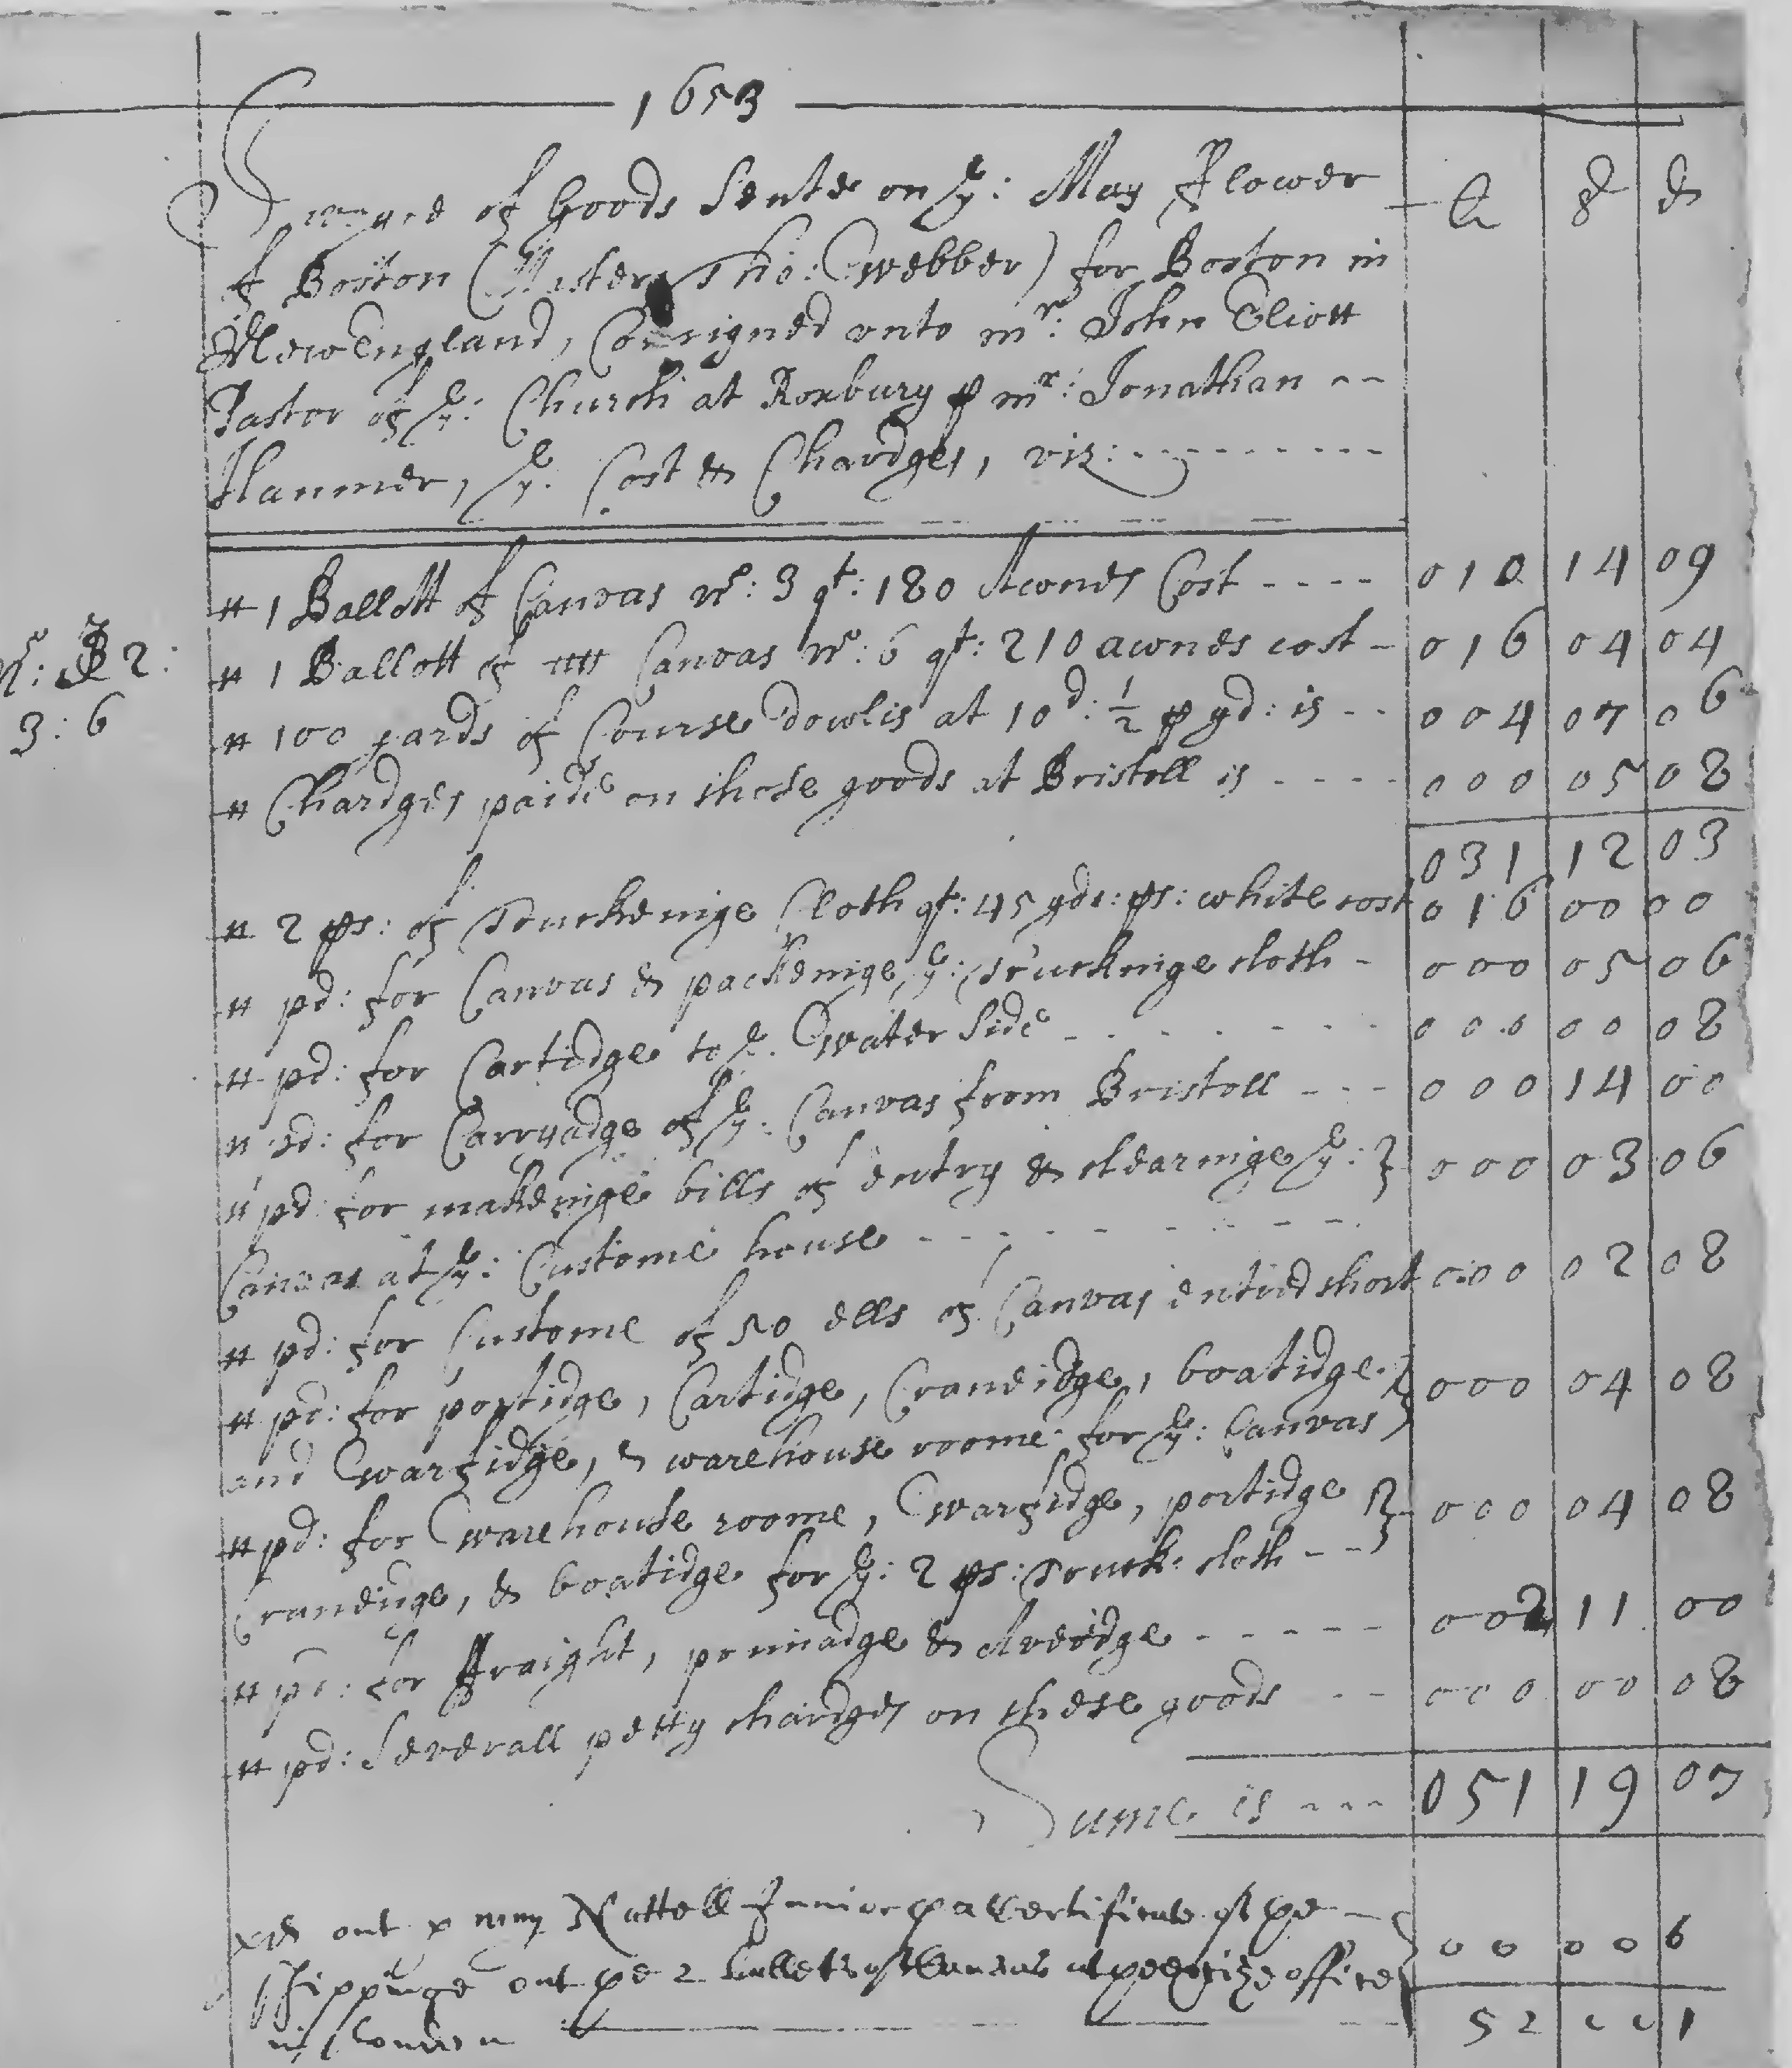 1653
Invoyce of Goods Sente on ye: May Flower li s d
of Boston (Master Tho: Webber) for Boston in
New England, Consigned unto mr: John Eliott
Pastor of ye: Church at Roxbury p mr: Jonathan --
Hanmer, ye. Cost & Chardges, viz: ---------
# 1 Ballott of Canvas no: 3 qt: 180 Awnes Cost ---- 010 14 09
no: B 2:
# 1 Ballott of Canvas no: 6 qt: 210 awnes cost - 016 04 04
3: 6
# 100 yards of Course dowlis at 10d: ½ p yd: is -- 004 07 06
# Chardges paide on those goods at Bristoll is ---- 000 05 08
031 12 03
# 2 ps: of Truckenige Cloth qt: 45 yds: ps: white cost 016 00 00
# pd: for Canvas & packenige ye: Trucknige cloth - 000 05 06
# pd: for Cartidge to ye. Water Side ------- 000 00 08
# pd: for Carryadge of ye: Canvas from Bristoll --- 000 14 00
# pd: for makenige bills of entry & clearnige ye: } 000 03 06
Canvas at ye: Custome house ---------
# pd: for Custome of 50 ells of Canvas entred short 000 02 08
# pd: for portidge, Cartidge, Craneidge, boatidge } 000 04 08
and Warfidge, & warehouse roome for ye: Canvas
# pd: for Warehouse roome, Warfidge, portidge } 000 04 08
Craneidge, & boatidge for ye: 2 ps: Truck: cloth --
# pd: for ffraight, primadge & Avеridge ----- 002 11 00
# pd: Severall petty chardges on these goods -- 000 00 08
Sume is --- 051 19 07
out p Nattell Junior p a Certificate of pe -
shippinge out pe 2 ballets of Canvas at pe Exize office } 00 00 6
in London
52 00 1